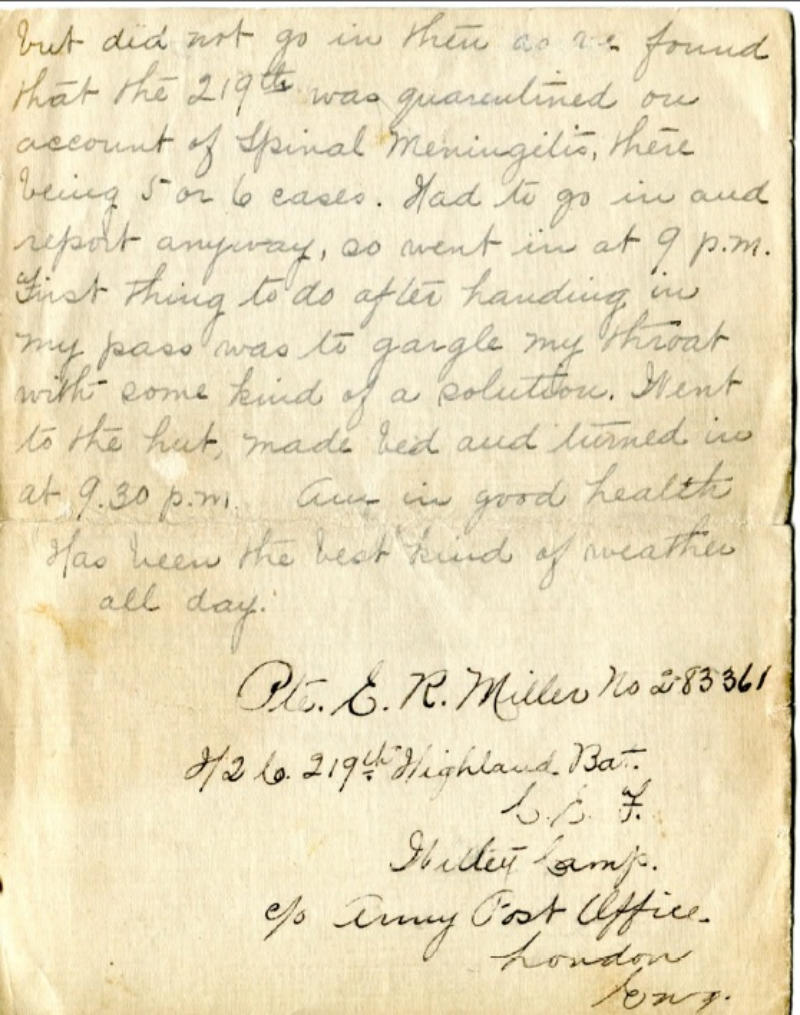 but did not go in then as we found
that the 219th was quarentined on
account of Spinal Meningitis, there
being 5 or 6 cases. Had to go in and
report anyway, so went in at 9 p.m.
First thing to do after handing in
my pass was to gargle my throat
with some kind of a solution. Went
to the hut, made bed and turned in
at 9.30 p.m. Am in good health
Has been the best kind of weather
all day.
Pte. E. R. Miller No 283361
219th Highland Bat.
C. E. F.
Witley Camp.
c/o Army Post Office.
London
Eng.